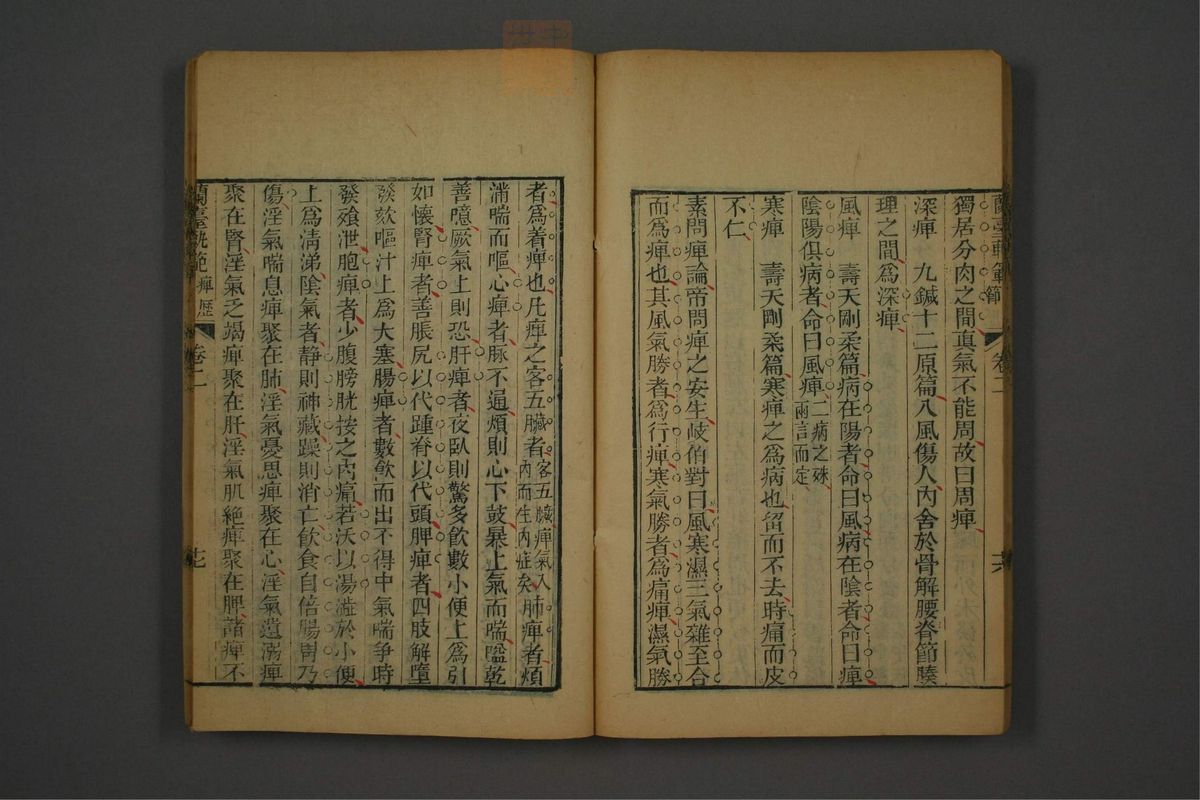 蘭臺軌範 卷二 十六
獨居分肉之間真氣不能周故曰周痺
深痺 九鍼十二原篇八風傷人內舍於骨解腰脊節腠
理之間為深痺
風痺 壽天剛柔篇病在陽者命曰風病在陰者命曰痺
陰陽俱病者命曰風痺二病之殊兩言而定
寒痺 壽天剛柔篇寒痺之為病也留而不去時痛而皮
不仁
素問痺論帝問痺之安生岐伯對曰風寒濕三氣雜至合
而為痺也其風氣勝者為行痺寒氣勝者為痛痺濕氣勝
者為着痺也凡痺之客五臟者客五臟痺氣入內而生內症矣肺痺者煩
滿喘而嘔心痺者脈不通煩則心下鼓暴上氣而喘嗌乾
善噫厥氣上則恐肝痺者夜臥則驚多飲數小便上為引
如懷腎痺者善脹尻以代踵脊以代頭脾痺者四肢解墮
發欬嘔汁上為大塞腸痺者數飲而出不得中氣喘爭時
發飧泄胞痺者少腹膀胱按之內痛若沃以湯澁於小便
上為清涕陰氣者靜則神藏躁則消亡飲食自倍腸胃乃
傷淫氣喘息痺聚在肺淫氣憂思痺聚在心淫氣遺溺痺
聚在腎淫氣乏竭痺聚在肝淫氣肌絕痺聚在脾諸痺不
蘭臺軌範 痺歷 卷二 十七